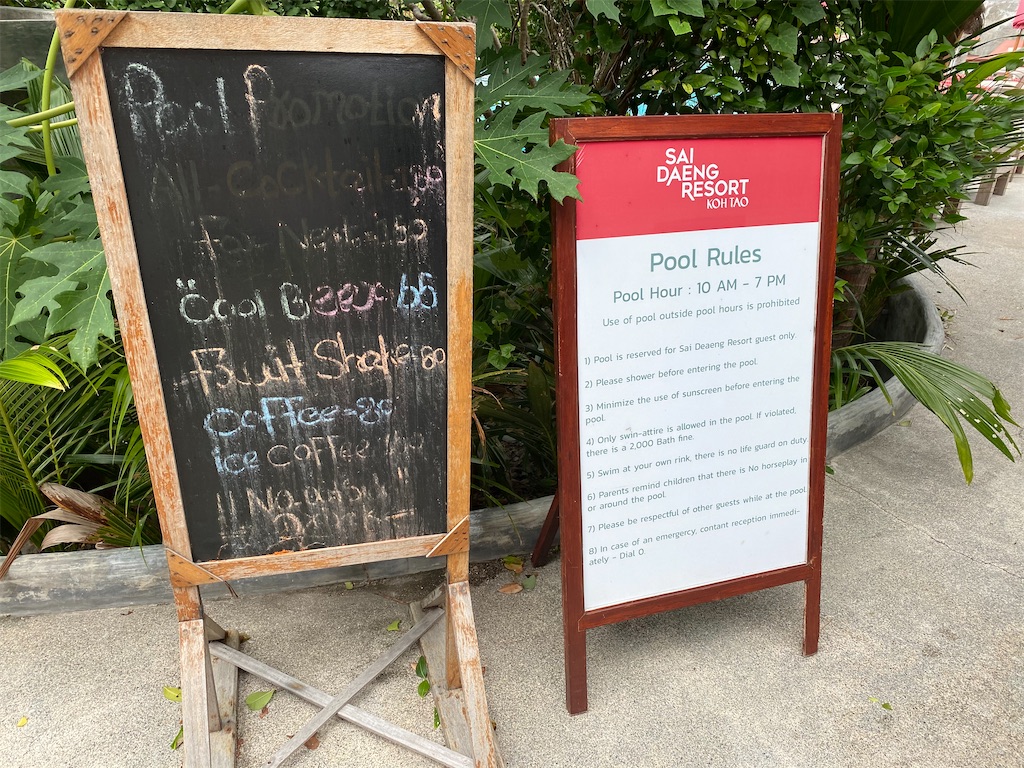 Pool Promotion
All-Cocktail
For
Cool Beer
Fruit Shake-80
Coffee-80
Ice Coffee
SAI
DAENG
RESORT
KOH TAO
Pool Rules
Pool Hour : 10 AM - 7 PM
Use of pool outside pool hours is prohibited
1) Pool is reserved for Sai Deaeng Resort guest only.
2) Please shower before entering the pool.
3) Minimize the use of sunscreen before entering the
pool.
4) Only swin-attire is allowed in the pool. If violated,
there is a 2,000 Bath fine.
5) Swim at your own rink, there is no life guard on duty
6) Parents remind children that there is No horseplay in
or around the pool.
7) Please be respectful of other guests while at the pool
8) In case of an emergency, contant reception immedi-
ately - Dial 0.